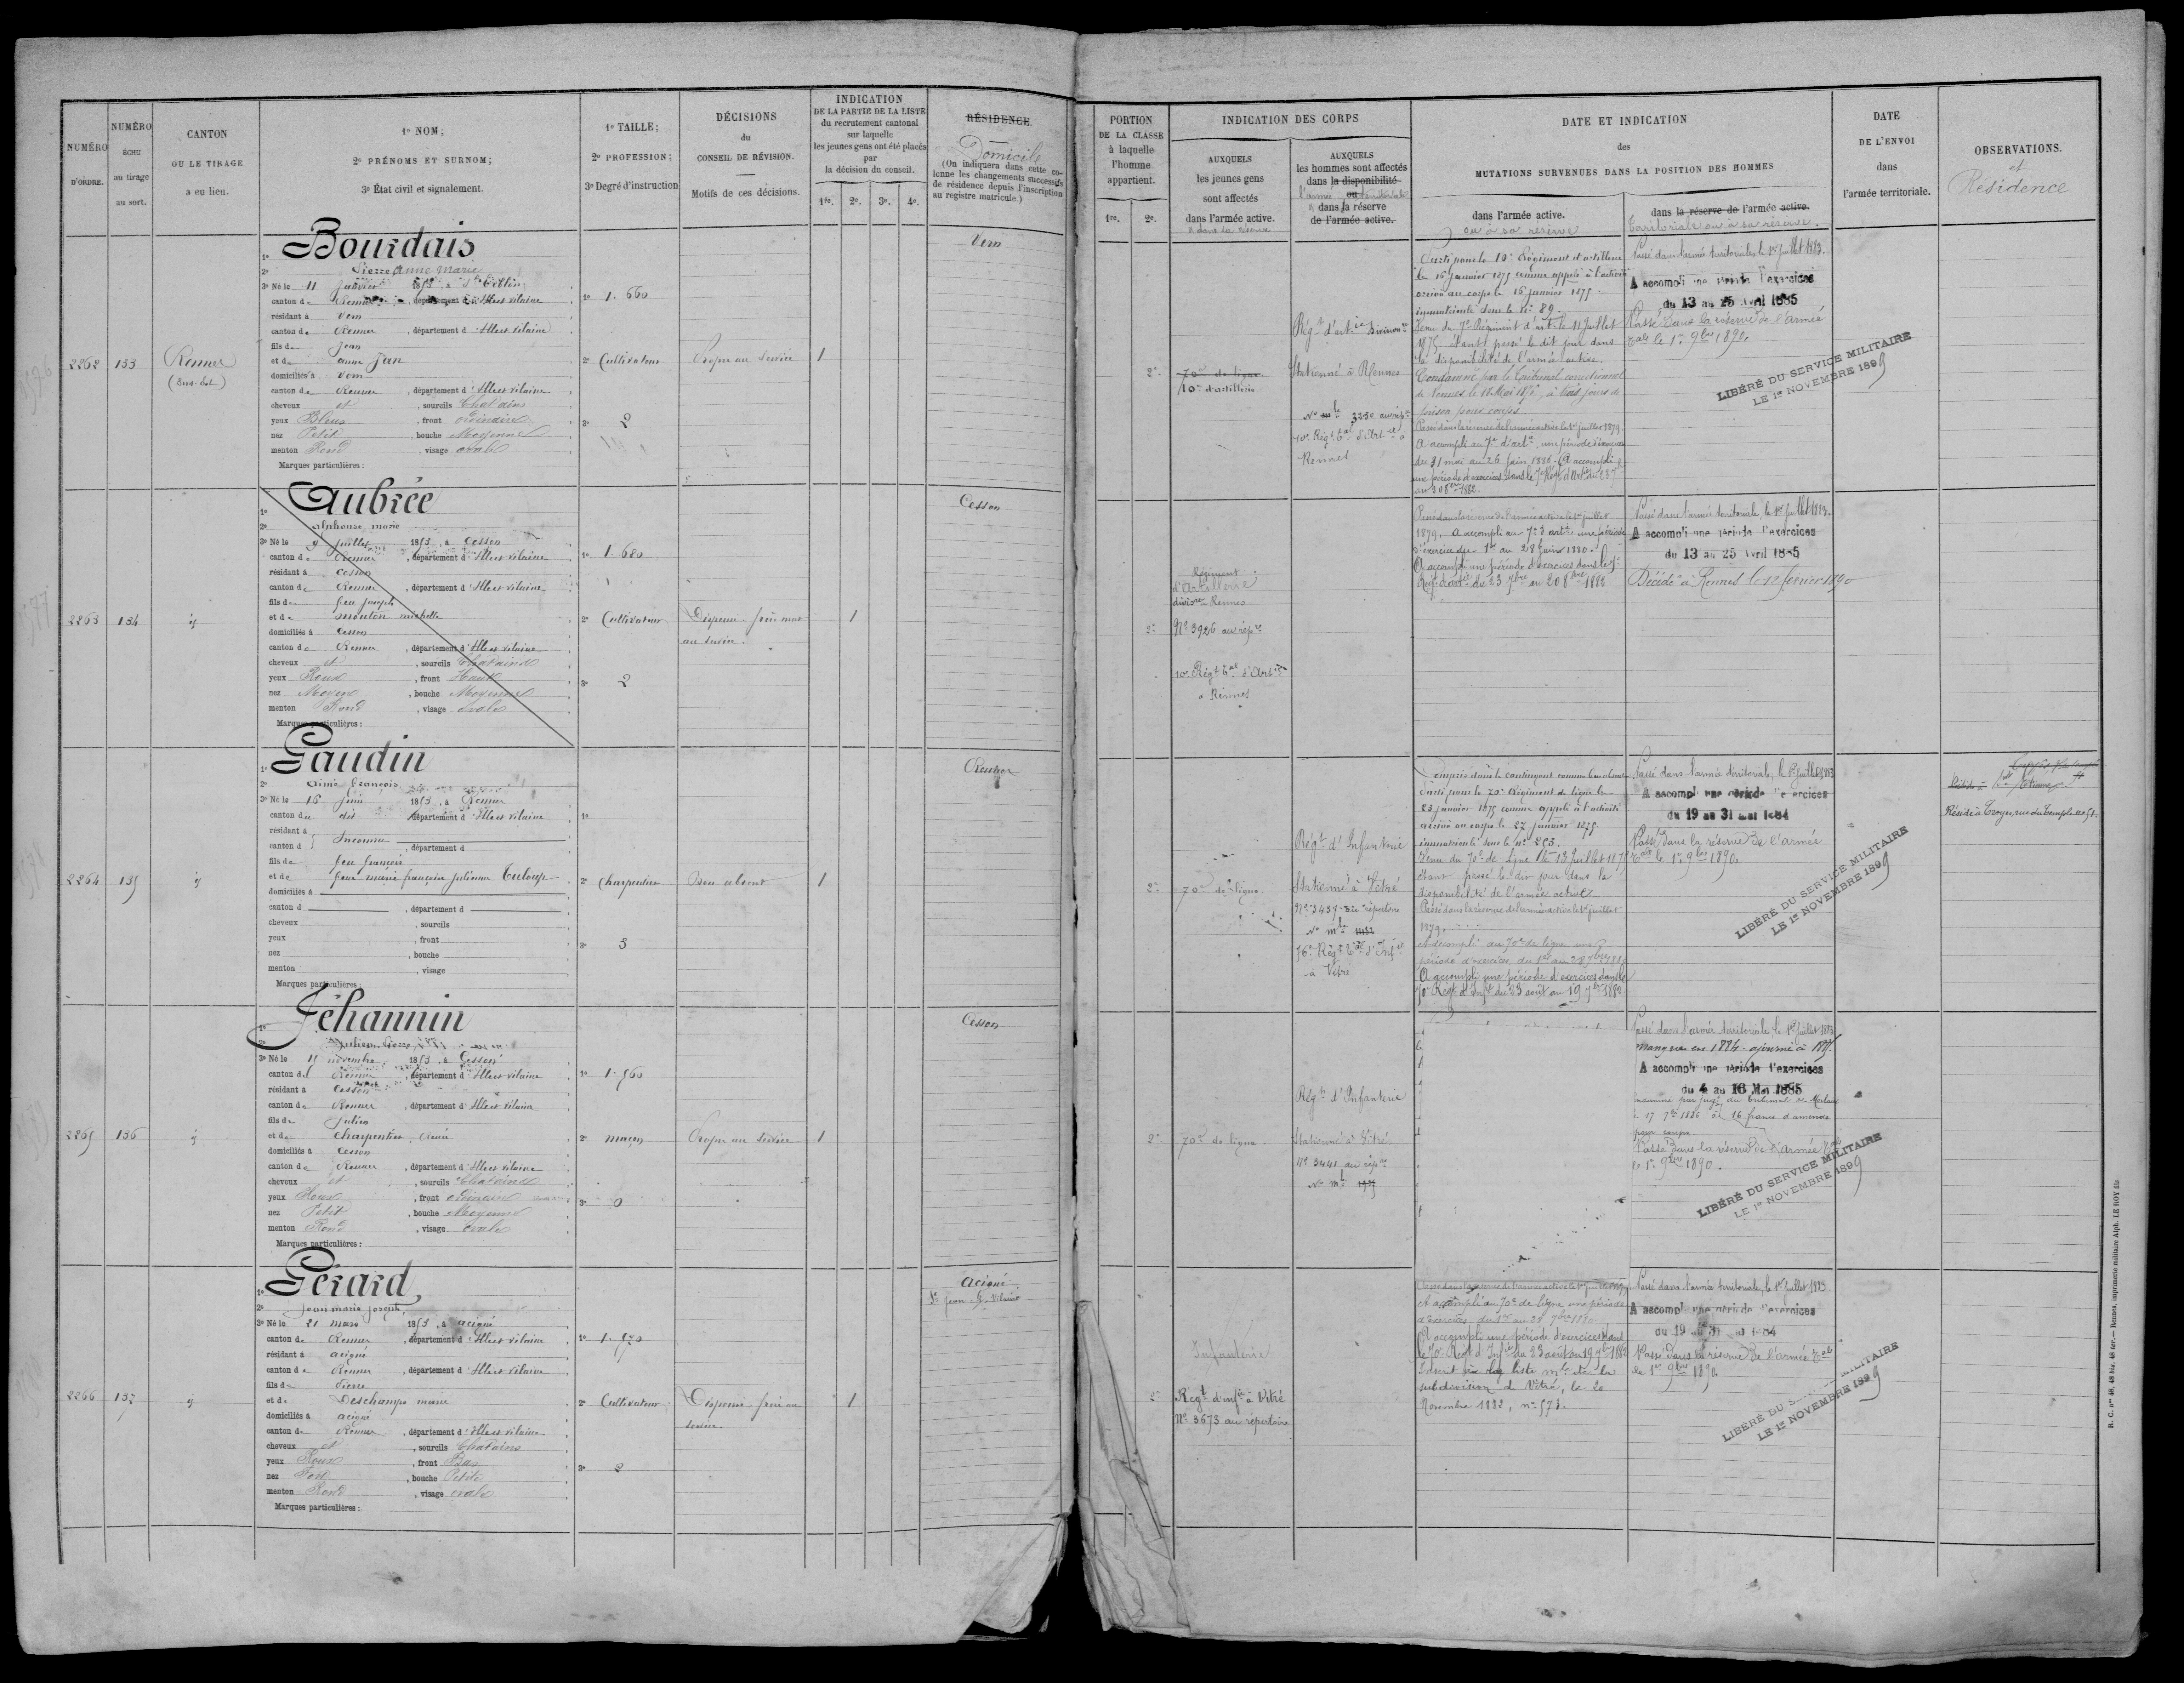 NUMÉRO
D'ORDRE.
NUMÉRO
ÉCHU
au tirage
au sort.
CANTON
OU LE TIRAGE
a eu lieu.
1º NOM;
2º PRÉNOMS ET SURNOM;
3º État civil et signalement.
1º TAILLE;
2º PROFESSION;
3º Degré d'instruction
DÉCISIONS
du
CONSEIL DE RÉVISION.
Motifs de ces décisions.
INDICATION
DE LA PARTIE DE LA LISTE
du recrutement cantonal
sur laquelle
les jeunes gens ont été placés
par
la décision du conseil.
1re. 2e. 3e. 4e.
RÉSIDENCE.
Domicile
(On indiquera dans cette co-
lonne les changements successifs
de résidence depuis l'inscription
au registre matricule.)
2262
133
Rennes
(Sud-Est)
1º Bourdais
2º Pierre Anne Marie
3º Né le 11 janvier 1853, à
canton de Rennes, département d'Ille et Vilaine
résidant à Vern
canton de Rennes, département d'Ille et Vilaine
fils de Jean
et de Anne Jan
domiciliés à Vern
canton de Rennes, département d'Ille et Vilaine
cheveux et, sourcils Chatains
yeux Bleus, front ordinaire
nez Petit, bouche Moyenne
menton Rond, visage ovale
Marques particulières :
1º 1.660
2º Cultivateur
3º 2
Propre au service
1
Vern
2263
134
id
1º Aubrée
2º Alphonse Marie
3º Né le 9 juillet 1853, à Cesson
canton de Rennes, département d'Ille et Vilaine
résidant à Cesson
canton de Rennes, département d'Ille et Vilaine
fils de feu Joseph
et de Mouton Michelle
domiciliés à Cesson
canton de Rennes, département d'Ille et Vilaine
cheveux et, sourcils Chatains
yeux Roux, front Haut
nez Moyen, bouche Moyenne
menton Rond, visage ovale
Marques particulières :
1º 1.680
2º Cultivateur
3º 2
Dispensé frère mort
au service.
1
Cesson
2264
135
id
1º Gaudin
2º Aimé François
3º Né le 16 juin 1853, à Rennes
canton du dit, département d'Ille et Vilaine
résidant à
canton d Inconnu, département d
fils de feu François
et de feue Marie Françoise Julienne Tuloup
domiciliés à
canton d, département d
cheveux, sourcils
yeux, front
nez, bouche
menton, visage
Marques particulières :
1º
2º Charpentier
3º 3
Bon absent
1
Rennes
2265
136
id
1º Jéhannin
2º Julien Pierre
3º Né le 15 novembre 1853, à Cesson
canton de Rennes, département d'Ille et Vilaine
résidant à Cesson
canton de Rennes, département d'Ille et Vilaine
fils de Julien
et de Charpentier Renée
domiciliés à Cesson
canton de Rennes, département d'Ille et Vilaine
cheveux et, sourcils Chatains
yeux Roux, front ordinaire
nez Petit, bouche Moyenne
menton Rond, visage ovale
Marques particulières :
1º 1.560
2º maçon
3º 0
Propre au service
1
Cesson
2266
137
id
1º Gérard
2º Jean Marie Joseph
3º Né le 21 mars 1853, à Acigné
canton de Rennes, département d'Ille et Vilaine
résidant à Acigné
canton de Rennes, département d'Ille et Vilaine
fils de Pierre
et de Deschamps Marie
domiciliés à Acigné
canton de Rennes, département d'Ille et Vilaine
cheveux et, sourcils Chatains
yeux Roux, front Bas
nez Fort, bouche Petite
menton Rond, visage ovale
Marques particulières :
1º 1.570
2º Cultivateur
3º 2
Dispensé frère au
service.
1
Acigné
St Jean-S-Vilaine
PORTION
DE LA CLASSE
à laquelle
l'homme
appartient.
1re. 2e.
INDICATION DES CORPS
AUXQUELS
les jeunes gens
sont affectés
dans l'armée active.
& dans sa réserve
AUXQUELS
les hommes sont affectés
dans la disponibilité
ou
l'armée territoriale
& dans la réserve
de l'armée active.
DATE ET INDICATION
des
MUTATIONS SURVENUES DANS LA POSITION DES HOMMES
dans l'armée active.
ou à sa réserve
dans la réserve de l'armée active.
territoriale ou à sa réserve.
DATE
DE L'ENVOI
dans
l'armée territoriale.
OBSERVATIONS.
et
Résidence
2e
70e de ligne
10e d'artillerie
Régt d'artie divisionre
Stationné à Rennes
3250 au répre
10e Régt tal d'Artie à
Rennes
Parti pour le 10e Régiment d'artillerie
le 16 janvier 1875 comme appelé à l'activité
arrivé au corps le 16 janvier 1875.
immatriculé sous le No 89.
Venu du 7e Régiment d'art. le 11 Juillet
1875 étant passé le dit jour dans
la disponibilité de l'armée active.
Condamné par le tribunal correctionnel
de Rennes le 11 Mai, à trois jours de
prison pour coups.
Passé dans la réserve de l'armée active le 1er juillet 1879.
A accompli au 7e d'artie une période d'exercices
du 31 mai au 26 juin 1880. A accompli
une période d'exercices dans le 7e Régt d'Artie du 23 7bre
au 20 8bre 1882.
Passé dans l'armée territoriale, le 1er Juillet 1883.
A accompli une période d'exercices
du 13 au 25 Avril 1885
Passé dans la réserve de l'armée
tale le 1er 9bre 1890.
LIBÉRÉ DU SERVICE MILITAIRE
LE 1er NOVEMBRE 1899
2e
Régiment
d'Artillerie
divisre Rennes
No 3926 au répre
10e Régt tal d'Artie
à Rennes
Passé dans la réserve de l'armée active le 1er juillet
1879. A accompli au 7e d'artie une période
d'exercices du 1er au 28 Juin 1880.
A accompli une période d'exercices dans le 7e
Régt d'artie du 23 7bre au 20 8bre 1882
Passé dans l'armée territoriale, le 1er Juillet 1883.
A accompli une période d'exercices
du 13 au 25 Avril 1885
Décédé à Rennes le 12 février 1890
2e
70e de ligne
Régt d'Infanterie
Stationné à Vitré
No 3437 au répertoire
No mle
76e Régt tal d'Infie
à Vitré
Compris dans le contingent comme bon absent
Parti pour le 70e Régiment de ligne le
23 janvier 1875 comme appelé à l'activité
arrivé au corps le 27 janvier 1875.
immatriculé sous le No 253.
Venu du 70e de Ligne le 13 Juillet 1875
étant passé le dit jour dans la
disponibilité de l'armée active
Passé dans la réserve de l'armée active le 1er juillet
1879.
A accompli au 70e de ligne une
période d'exercices du 1er au 28 7bre
A accompli une période d'exercices dans le
70e Régt d'Infie du 23 août au 19 7bre 1882
Passé dans l'armée territoriale, le 1er Juillet 1883
A accompli une période d'exercices
du 19 au 31 Mai 1884
Passé dans la réserve de l'armée
tale le 1er 9bre 1890.
LIBÉRÉ DU SERVICE MILITAIRE
LE 1er NOVEMBRE 1899
Réside à Troyes, rue du Temple no 51.
2e
70e de ligne.
Régt d'Infanterie
Stationné à Vitré
No 3441 au répre
No mle
Passé dans l'armée territoriale, le 1er Juillet 1883
manqué en 1884. ajourné à 1885.
A accompli une période d'exercices
du 4 au 16 Mai 1885
condamné par jugt du tribunal de
le 17 7bre 1886 à 16 francs d'amende
pour coups.
Passé dans la réserve de l'armée tale
le 1er 9bre 1890.
LIBÉRÉ DU SERVICE MILITAIRE
LE 1er NOVEMBRE 1899
2e
Infanterie
Régt d'infie à Vitré
No 3673 au répertoire
Passé dans la réserve de l'armée active le 1er juillet 1879
A accompli au 70e de ligne une période
d'exercices du 1er au 28 7bre 1880
A accompli une période d'exercices dans
le 70e Régt d'Infie du 23 août au 19 7bre 1882
Inscrit sur la liste mle de la
subdivision de Vitré, le 20
Novembre 1882, no 578.
Passé dans l'armée territoriale, le 1er Juillet 1883.
A accompli une période d'exercices
du 19 au 31 Mai 1884
Passé dans la réserve de l'armée tale
le 1er 9bre 1890
LIBÉRÉ DU SERVICE MILITAIRE
LE 1er NOVEMBRE 1899
R. C. nos 48, 48 bis, 48 ter. — Rennes, imprimerie militaire Alph. LE ROY fils